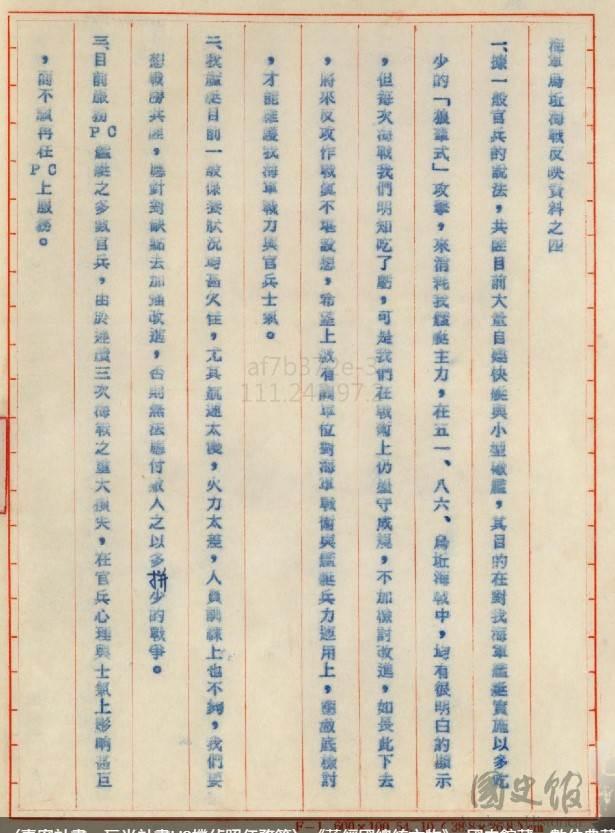 海軍烏坵海戰反映資料之四
一、據一般官兵的說法，共匪目前大量自造快艇與小型砲艦，其目的在對我海軍艦艇實施以多吃
少的「狼羣式」攻擊，來消耗我艦艇主力，在五一、八六、烏坵海戰中，均有很明白的顯示
，但每次海戰我們明知吃了虧，可是我們在戰術上仍墨守成規，不加檢討改進，如長此下去
，將來反攻作戰與不堪設想，希望上級有關單位對海軍戰術與艦艇兵力運用上，要徹底檢討
，才能維護我海軍戰力與官兵士氣。
二、我艦艇目前一般保養狀況均甚欠佳，尤其航速太慢，火力太差，人員訓練上也不夠，我們要
想戰勝共匪，應針對缺點去加強改進，否則無法應付敵人之以多拼少的戰爭。
三、目前服務PC艦艇之多數官兵，由於連續三次海戰之重大損失，在官兵心理與士氣上影响甚巨
，而不願再在PC上服務。
af7b372e-3
國史館